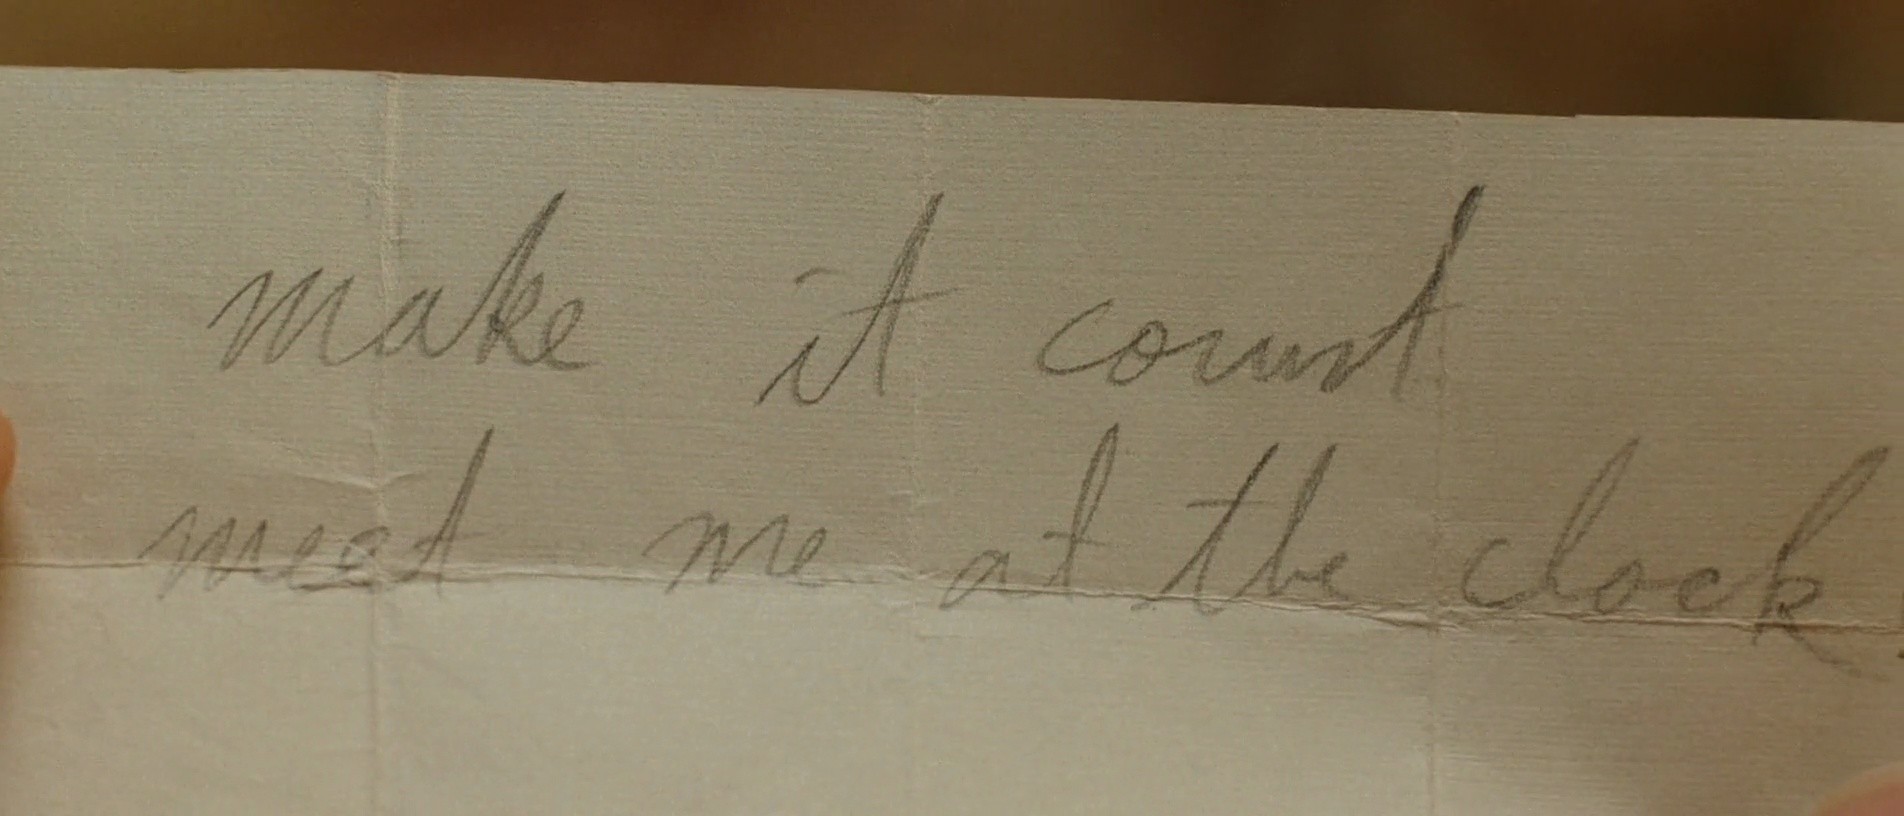 make it count
meet me at the clock.